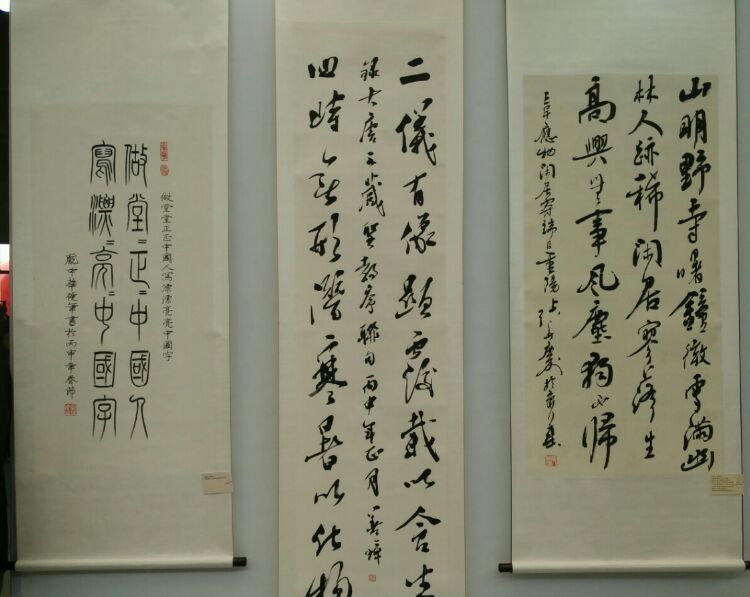 山明野寺曙鐘微雪滿幽
林人跡稀閑居寥落生
高興無事風塵獨不歸
韋應物閑居寄端及重陽
二儀有像顯覆載以含生
錄大唐三藏聖教序聯句丙申年正月
四時無形潛寒暑以化物
做堂堂正正中國人寫漂漂亮亮中國字
做堂〻正〻中國人
寫漂〻亮〻中國字
龐中華硬筆書於丙申年春節